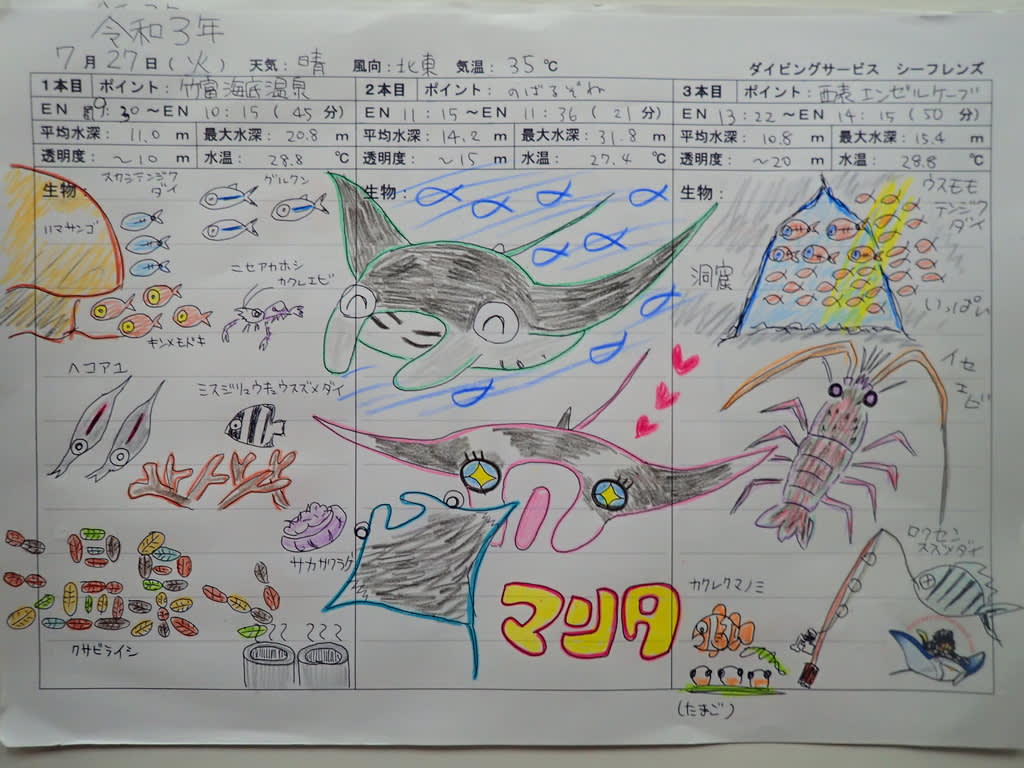 令和3年
7月27日(火) 天気:晴 風向:北東 気温:35℃
ダイビングサービス シーフレンズ
1本目 ポイント:竹富海底温泉
EN 9:30~EN 10:15(45分)
平均水深:11.0m 最大水深:20.8m
透明度:~10m 水温:28.8℃
生物:
スカシテンジク
ダイ
グルクン
ハマサンゴ
ニセアカホシ
カクレエビ
キンメモドキ
ヘコアユ
ミスジリュウキュウスズメダイ
サカサクラゲ
クサビライシ
2本目 ポイント:のばるぞね
EN 11:15~EN 11:36(21分)
平均水深:14.2m 最大水深:31.8m
透明度:~15m 水温:27.4℃
生物:
マンタ
3本目 ポイント:西表エンゼルケーブ
EN 13:22~EN 14:15(50分)
平均水深:10.8m 最大水深:15.4m
透明度:~20m 水温:28.8℃
生物:
ウスモモ
テンジク
ダイ
いっぱい
洞窟
イセ
エビ
ロクセン
スズメダイ
カクレクマノミ
(たまご)